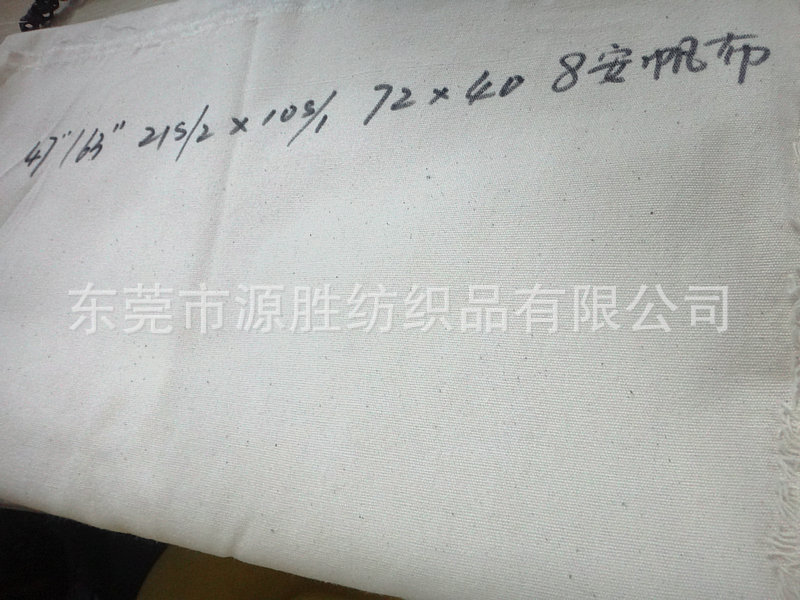 47"/63" 21S/2 × 10S/1 72×40 8安帆布
东莞市源胜纺织品有限公司